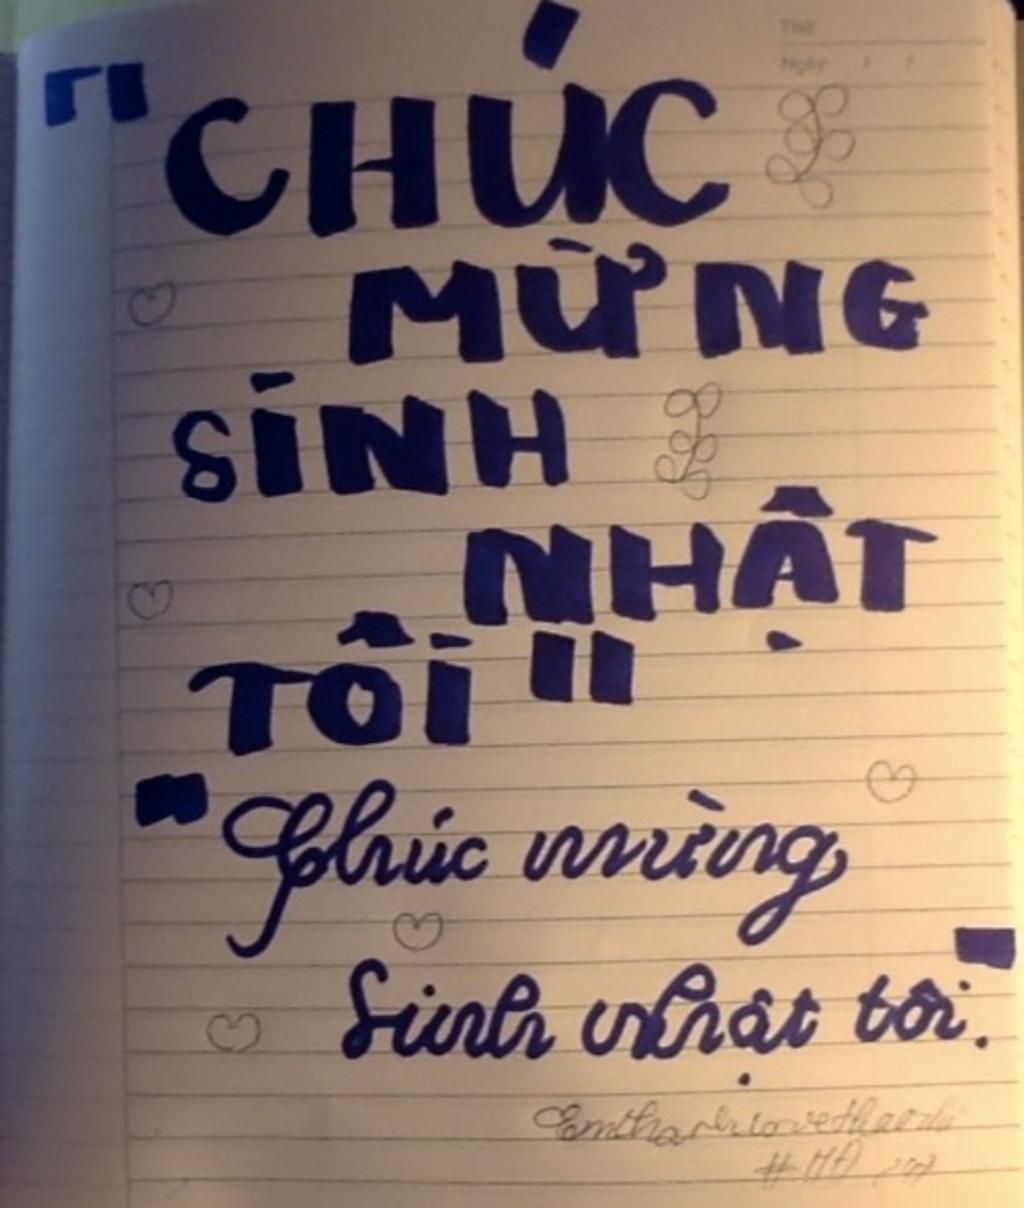 Thứ
Ngày / /
"CHÚC
MỪNG
SINH
NHẬT
TÔI"
"Chúc mừng
Sinh nhật tôi."